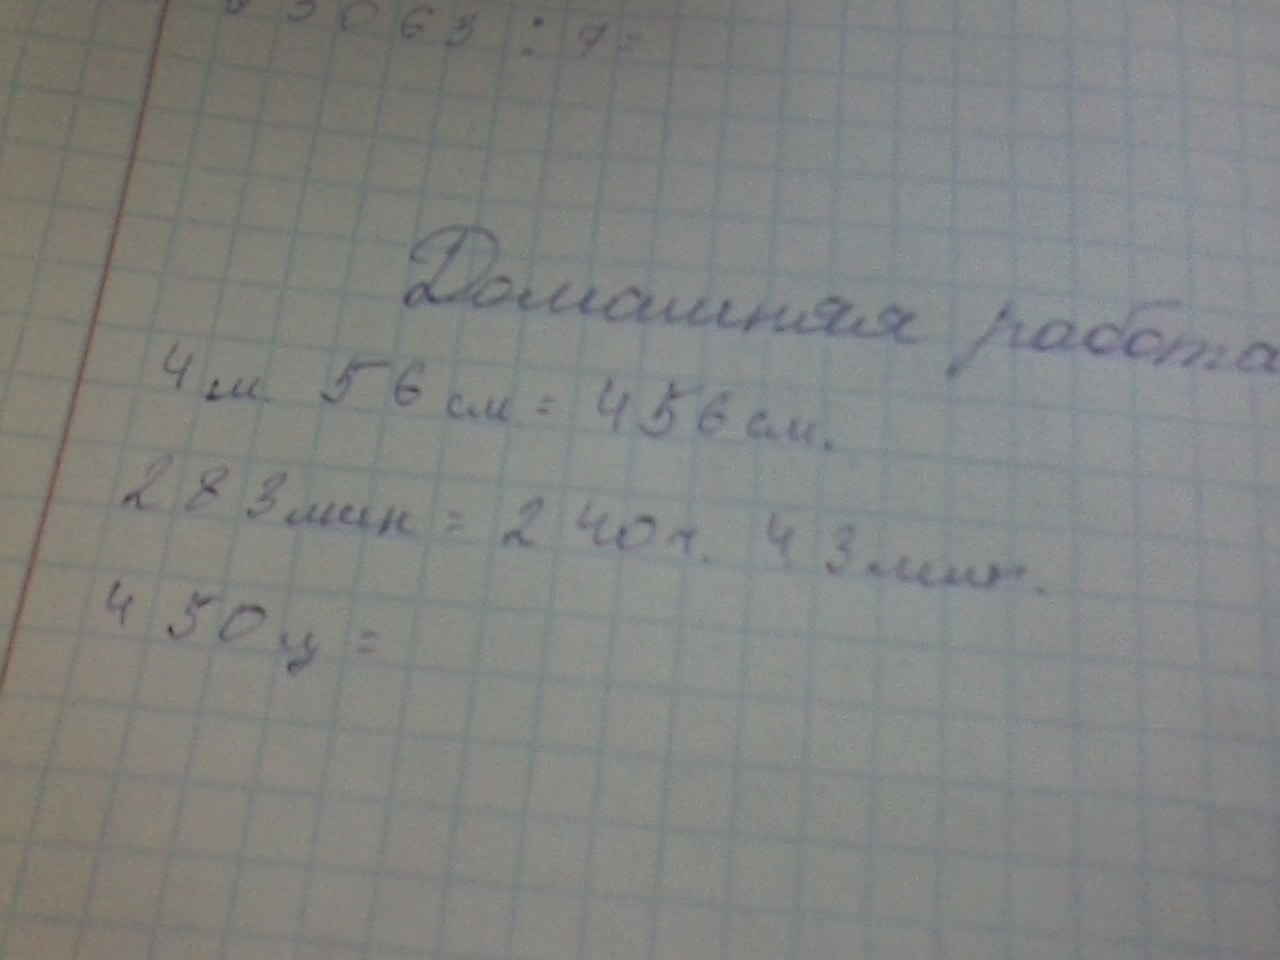 3063 : 7=
Домашняя работа
4м 56см = 456см.
283мин = 240ч. 43мин.
450ц =